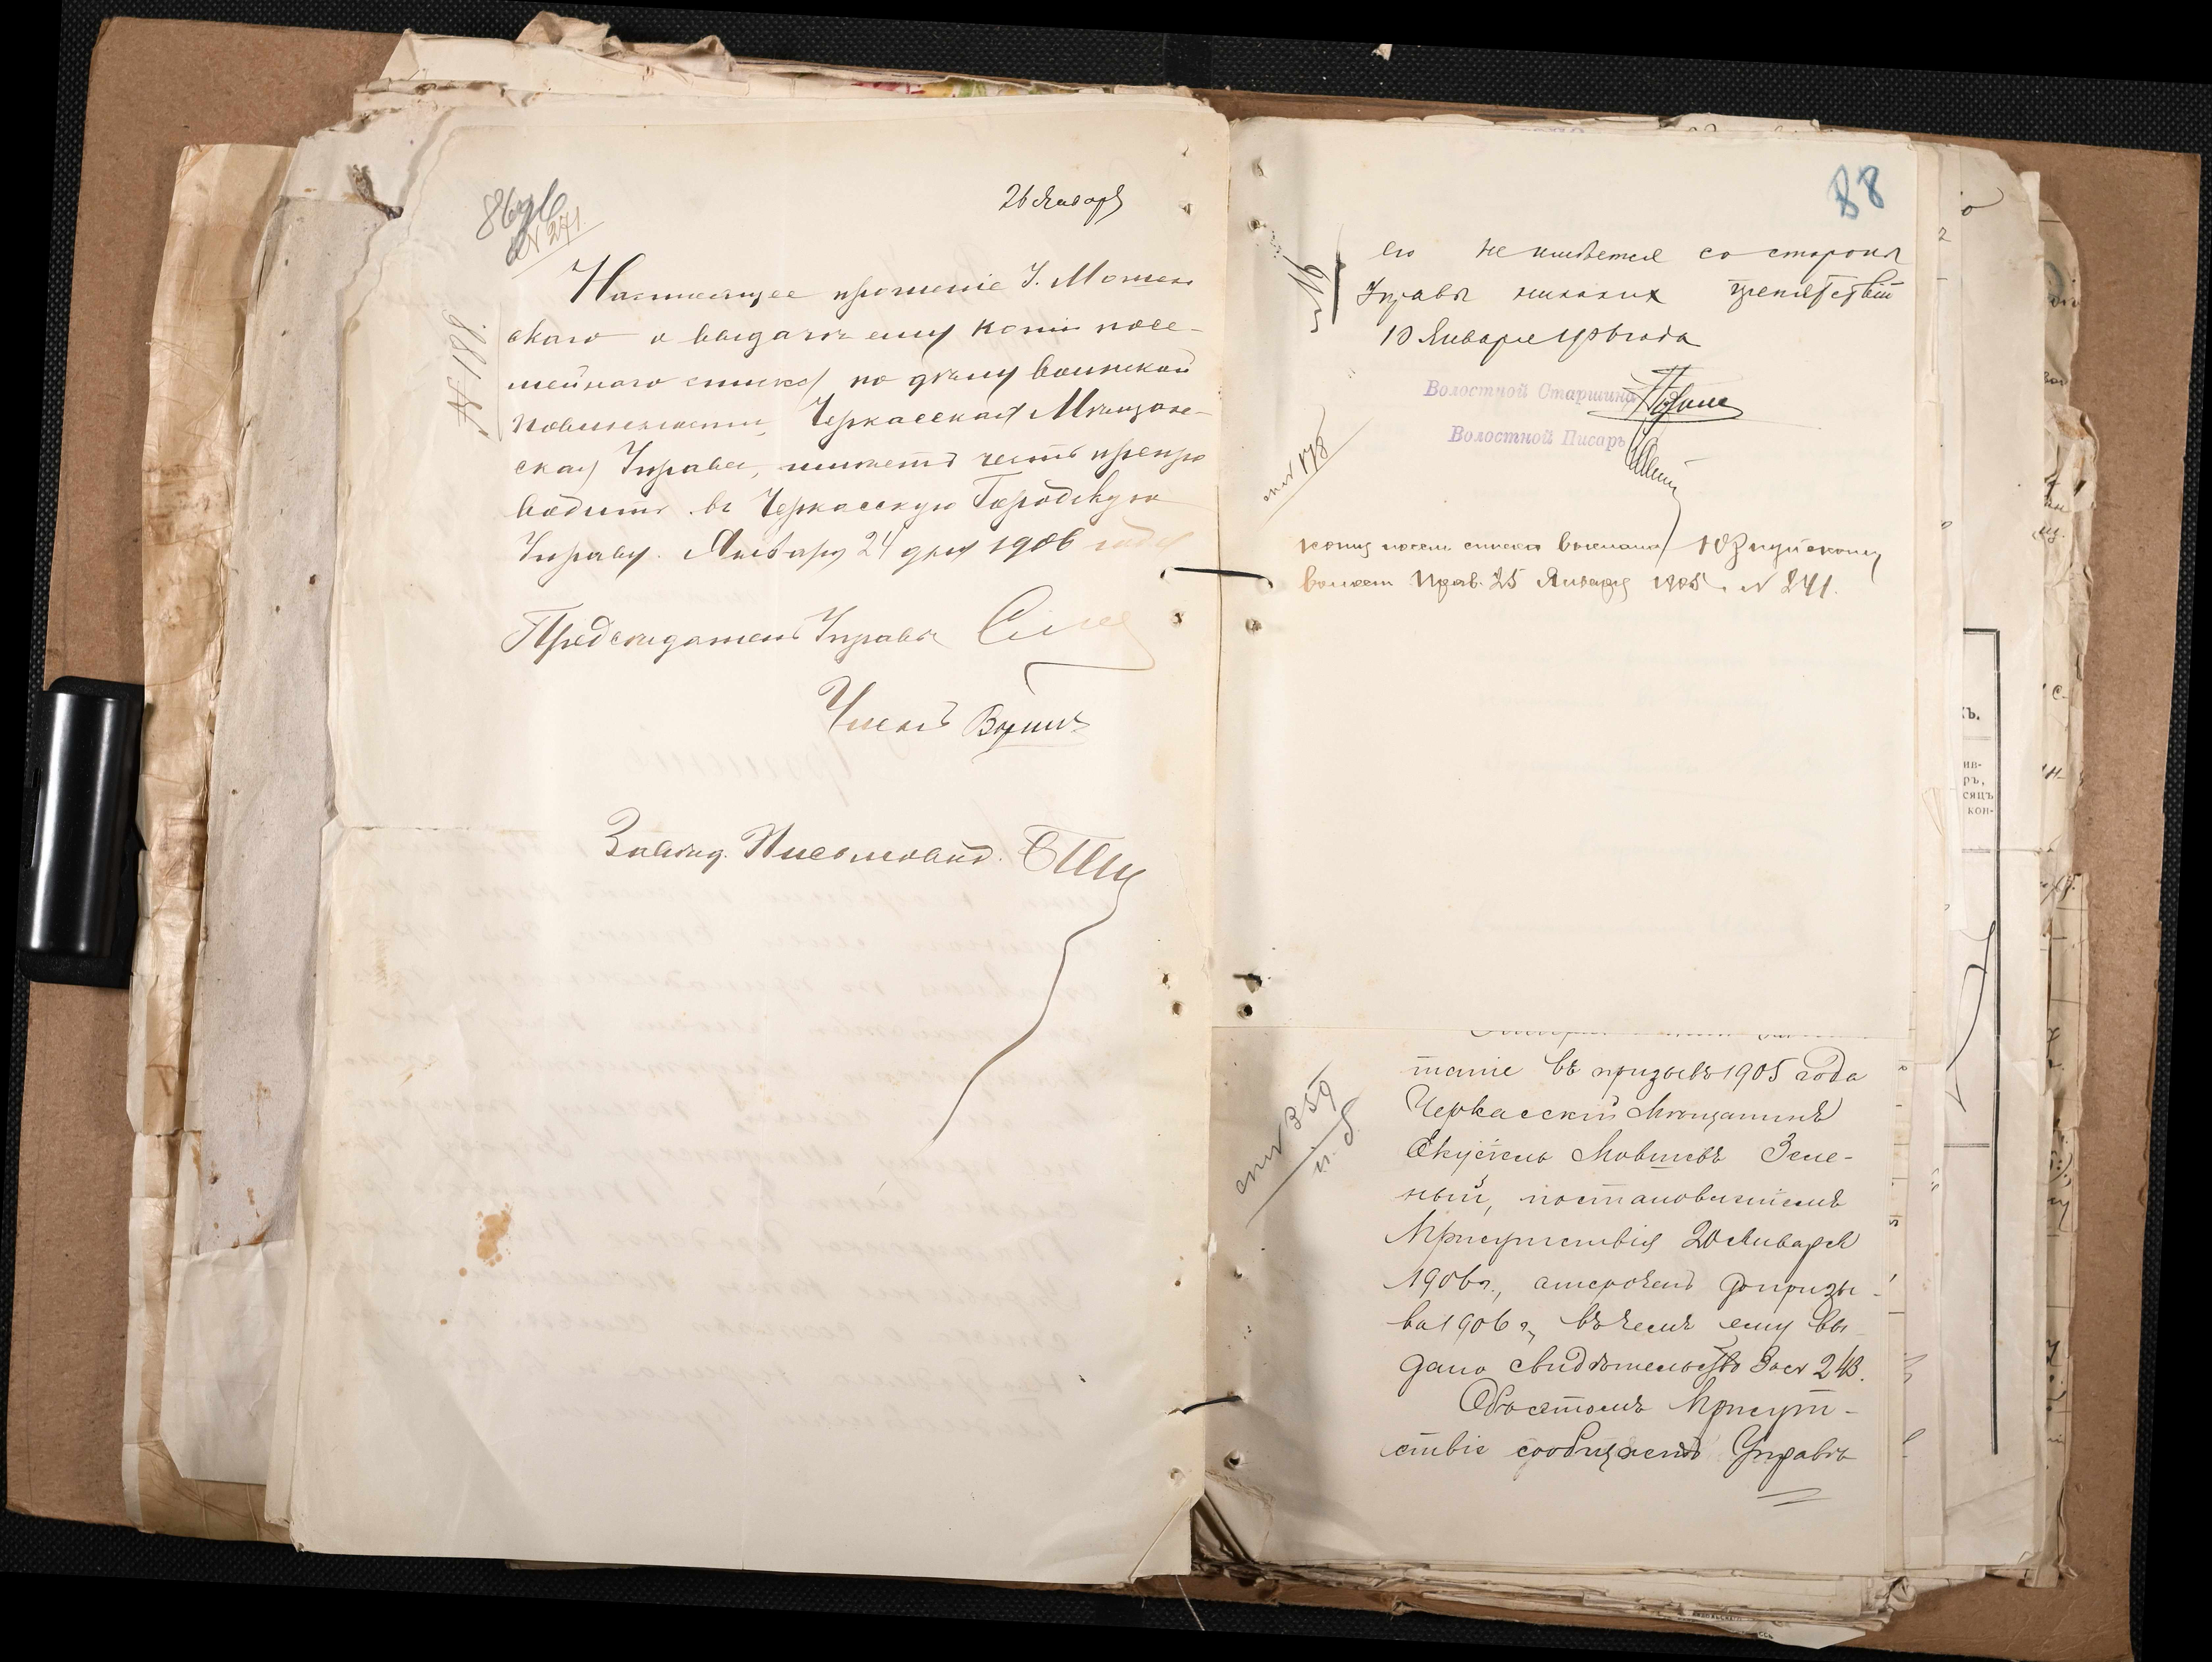 26 Января
№ 271.
№ 188.
Настоящее прошеніе І. Мошен
скаго о выдачѣ ему копіи посе-
мейнаго списка по дѣлу воинской
повинности, Черкасская Мѣщан-
ская Управа, имѣетъ честь препро
водить въ Черкасскую Городскую
Управу. Января 24 дня 1906 года
Предсѣдатель Управы
Членъ
Завѣд. Письмовод.
88
его не имѣется со стороны
Управы никакихъ препятствій
10 Января 1906 года
Волостной Старшина
Волостной Писарь
копія посем. списка выслана
волост. Прав. 25 Января 1906 г. № 241.
таніе въ призывъ 1905 года
Черкасскій Мѣщанинъ
Екусіель Мовшевъ Зеле-
ный, постановленіемъ
Присутствія 20 Января
1906 г., отсроченъ до призы-
ва 1906 г., въ чемъ ему вы-
дано свидѣтельство за № 243.
Объ этомъ Присут-
ствіе сообщаетъ Управѣ